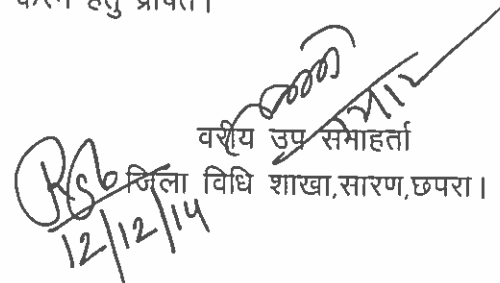 करने हेतु प्रेषित।
वरीय उप समाहर्ता
जिला विधि शाखा,सारण,छपरा।
12/12/14